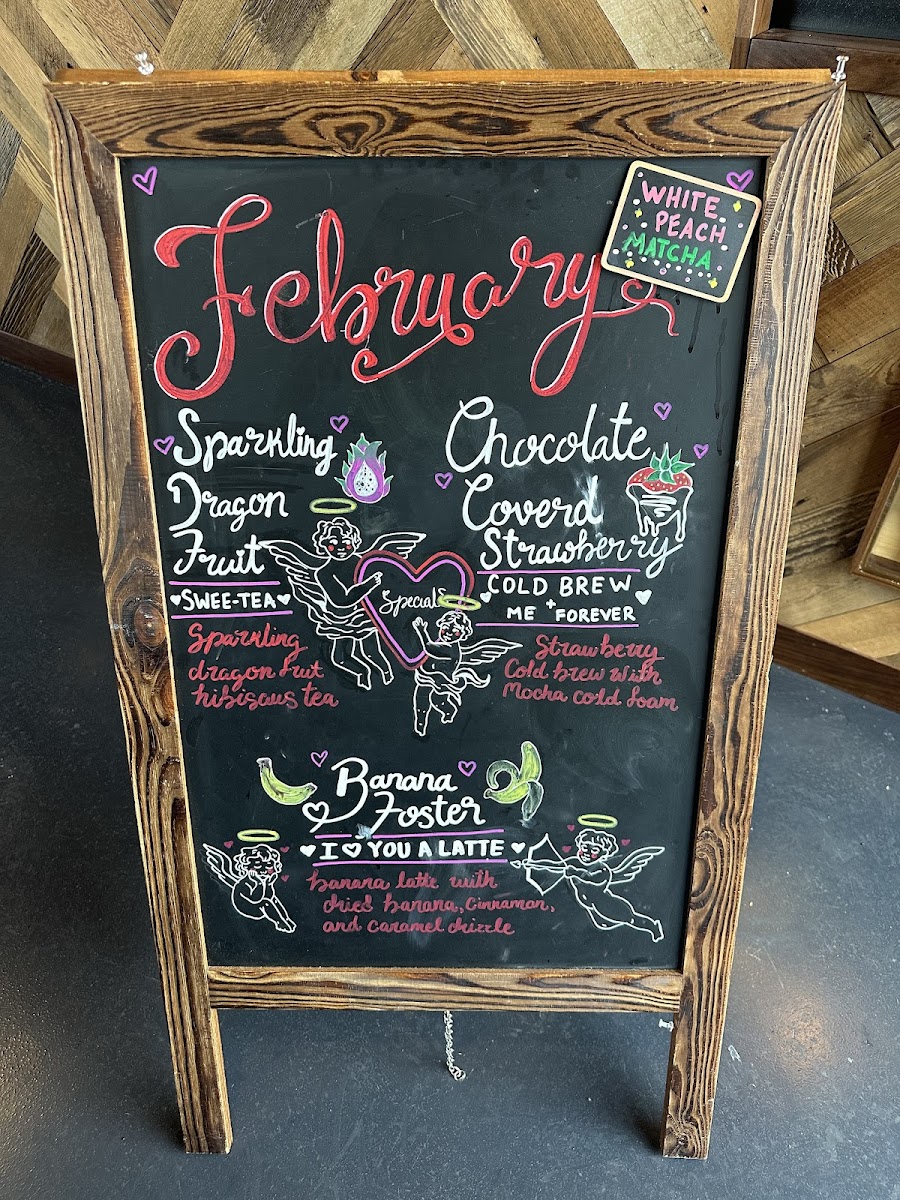 February
WHITE
PEACH
MATCHA
Sparkling
Dragon
Fruit
SWEE-TEA
Sparkling
dragon fruit
hibiscus tea
Specials
Chocolate
Coverd
Strawberry
COLD BREW
ME + FOREVER
Strawberry
Cold brew with
Mocha cold foam
Banana
Foster
I ♡ YOU A LATTE
banana latte with
dried banana, Cinnamon,
and caramel drizzle